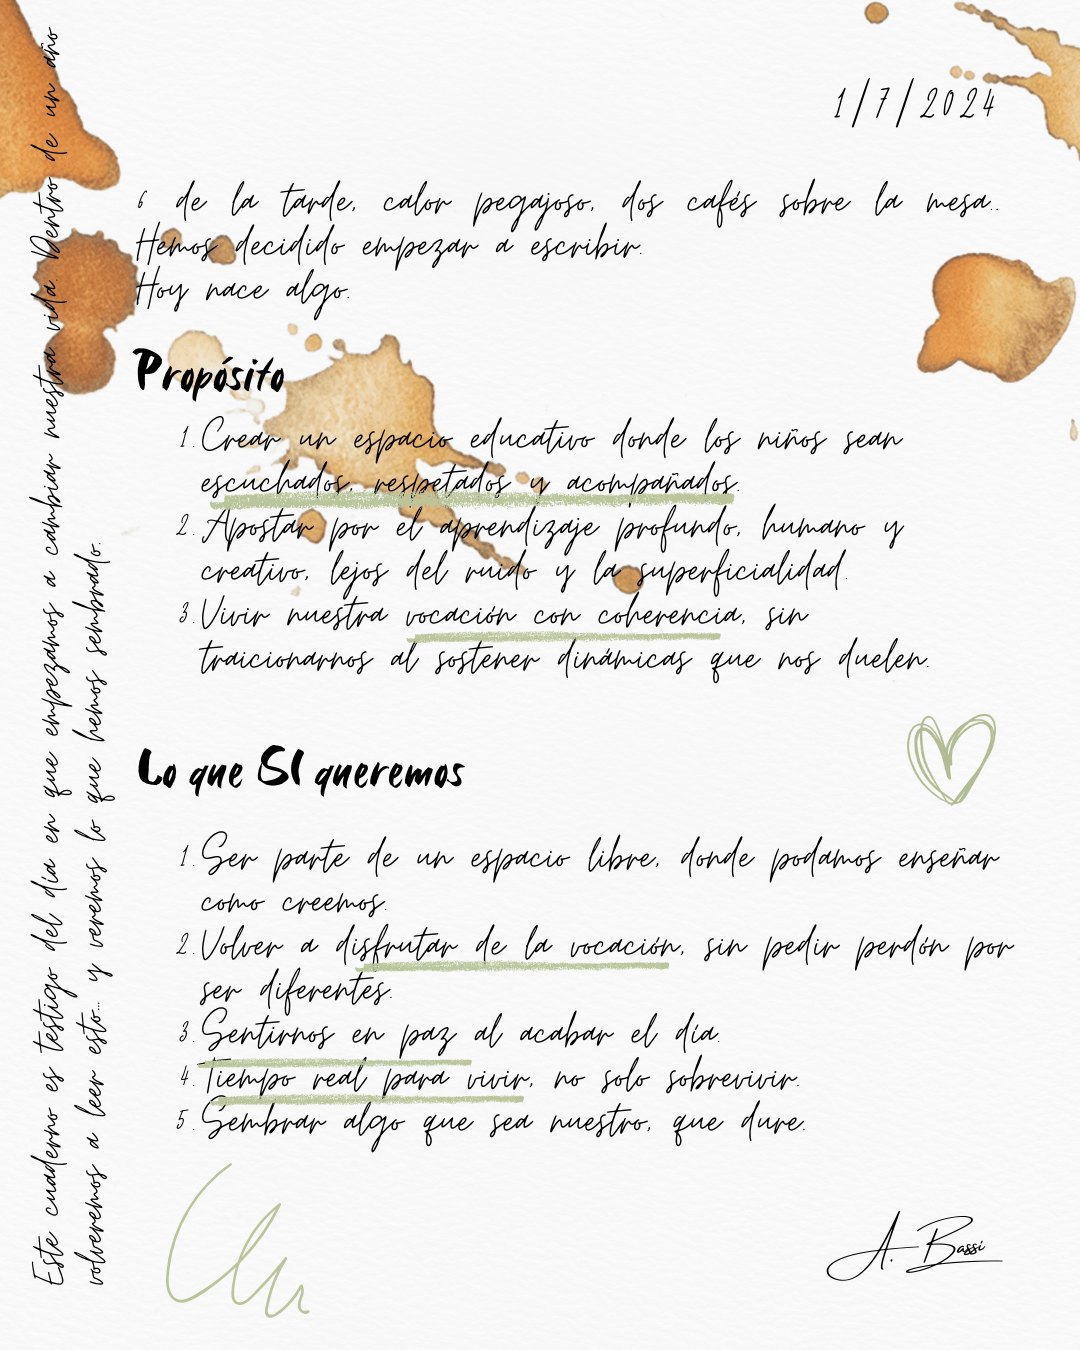 1/7/2024
6 de la tarde, calor pegajoso, dos cafés sobre la mesa..
Hemos decidido empezar a escribir.
Hoy nace algo.
Propósito
1. Crear un espacio educativo donde los niños sean
escuchados, respetados y acompañados.
2. Apostar por el aprendizaje profundo, humano y
creativo, lejos del ruido y la superficialidad.
3. Vivir nuestra vocación con coherencia, sin
traicionarnos al sostener dinámicas que nos duelen.
Lo que SI queremos
1. Ser parte de un espacio libre, donde podamos enseñar
como creemos.
2. Volver a disfrutar de la vocación, sin pedir perdón por
ser diferentes.
3. Sentirnos en paz al acabar el día.
4. Tiempo real para vivir, no solo sobrevivir.
5. Sembrar algo que sea nuestro, que dure.
A. Bassi
Este cuaderno es testigo del día en que empezamos a cambiar nuestra vida Dentro de un año
volveremos a leer esto... y veremos lo que hemos sembrado.